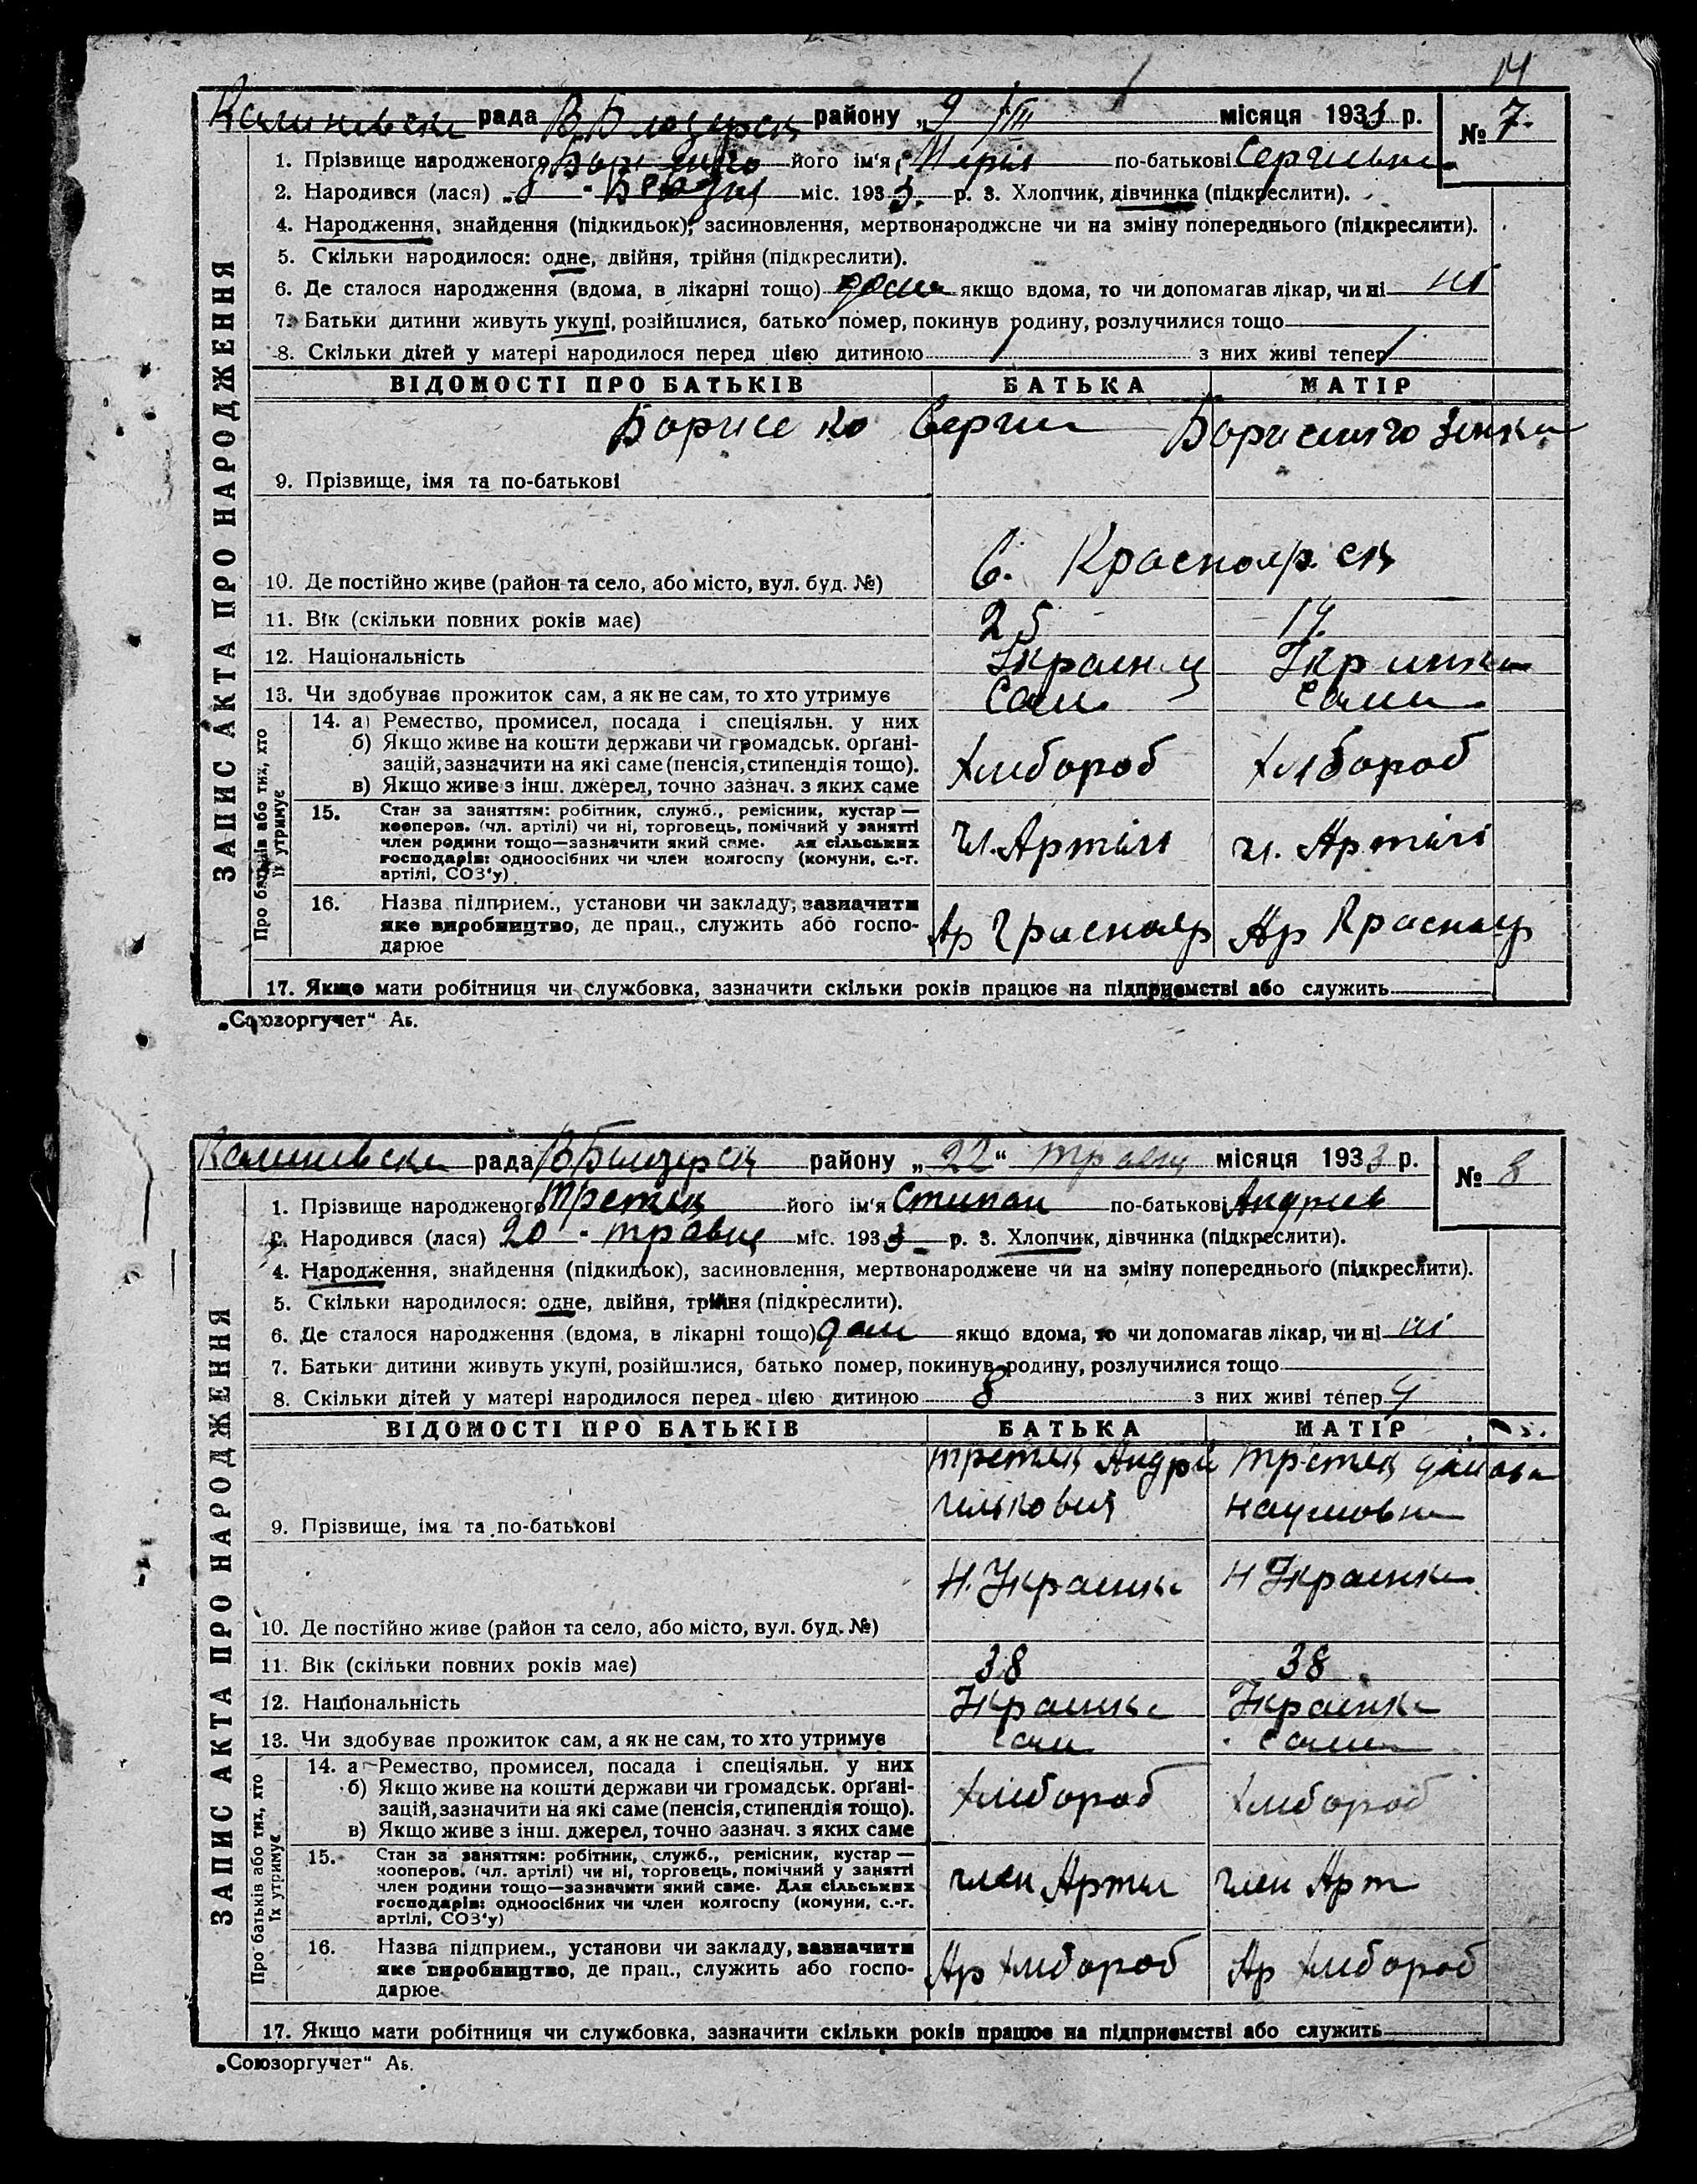 14
Калинівська рада В.Білозерск району „9 /III місяця 1933 р. № 7.
1. Прізвище народженого Борисенко його ім'я Марія по-батькові Сергиевна
2. Народився (лася) „8 - Березня міс. 1933. р. 3. Хлопчик, дівчинка (підкреслити).
4. Народження, знайдення (підкидьок), засиновлення, мертвонароджене чи на зміну попереднього (підкреслити).
5. Скільки народилося: одне, двійня, трійня (підкреслити).
6. Де сталося народження (вдома, в лікарні тощо) дома якщо вдома, то чи допомагав лікар, чи ні ні
7. Батьки дитини живуть укупі, розійшлися, батько помер, покинув родину, розлучилися тощо
8. Скільки дітей у матері народилося перед цією дитиною / з них живі тепер /
ВІДОМОСТІ ПРО БАТЬКІВ БАТЬКА МАТІР
Борисенко Сергии Борисенко Зинка
9. Прізвище, імя та по-батькові
С. Красноярск
10. Де постійно живе (район та село, або місто, вул. буд. №)
11. Вік (скільки повних років має) 25 19
12. Національність Украинц Укринка
13. Чи здобуває прожиток сам, а як не сам, то хто утримує Сам Сами
14. а) Ремество, промисел, посада і спеціяльн. у них
б) Якщо живе на кошти держави чи громадськ. орґані-
зацій, зазначити на які саме (пенсія, стипендія тощо). Хлибороб Хлібороб
в) Якщо живе з інш. джерел, точно зазнач. з яких саме
15. Стан за заняттям: робітник, служб., ремісник, кустар —
кооперов. (чл. артілі) чи ні, торговець, помічний у занятті
член родини тощо—зазначити який саме. ля сільських чл. Артілі чл. Артілі
господарів: одноосібних чи член колгоспу (комуни, с.-г.
артілі, СОЗ'у)
16. Назва підприєм., установи чи закладу, зазначити
яке виробництво, де прац., служить або госпо- Ар Краснояр Ар Краснояр
дарює
17. Якщо мати робітниця чи службовка, зазначити скільки років працює на підприємстві або служить
ЗАПИС АКТА ПРО НАРОДЖЕННЯ
Про батьків або тих, хто
їх утримує
„Союзоргучет" Аб.
Калинівська рада В Білозерск району „22" травня місяця 1933 р. № 8
1. Прізвище народженого Третяк його ім'я Стипан по-батькові Андриев
2. Народився (лася) 20 - травня міс. 1933 р. 3. Хлопчик, дівчинка (підкреслити).
4. Народження, знайдення (підкидьок), засиновлення, мертвонароджене чи на зміну попереднього (підкреслити).
5. Скільки народилося: одне, двійня, трійня (підкреслити).
6. Де сталося народження (вдома, в лікарні тощо) дом якщо вдома, то чи допомагав лікар, чи ні ні
7. Батьки дитини живуть укупі, розійшлися, батько помер, покинув родину, розлучилися тощо
8. Скільки дітей у матері народилося перед цією дитиною 8 з них живі тепер 4
ВІДОМОСТІ ПРО БАТЬКІВ БАТЬКА МАТІР
Третяк Андрій Третяк
Наумовна
9. Прізвище, імя та по-батькові
Н. Украинка Н Украинка
10. Де постійно живе (район та село, або місто, вул. буд. №)
11. Вік (скільки повних років має) 38 38
12. Національність Украинка Украинка
13. Чи здобуває прожиток сам, а як не сам, то хто утримує Сам Сами
14. а Ремество, промисел, посада і спеціяльн. у них
б) Якщо живе на кошти держави чи громадськ. орґані-
зацій, зазначити на які саме (пенсія, стипендія тощо). Хлибороб Хлибороб
в) Якщо живе з інш. джерел, точно зазнач. з яких саме
15. Стан за заняттям: робітник, служб., ремісник, кустар —
кооперов. (чл. артілі) чи ні, торговець, помічний у занятті
член родини тощо—зазначити який саме. Для сільських член Артил член Арт
господарів: одноосібних чи член колгоспу (комуни, с.-г.
артілі, СОЗ'у)
16. Назва підприєм., установи чи закладу, зазначити
яке виробництво, де прац., служить або госпо- Ар Хлибороб Ар Хлибороб
дарює
17. Якщо мати робітниця чи службовка, зазначити скільки років працює на підприємстві або служить
ЗАПИС АКТА ПРО НАРОДЖЕННЯ
Про батьків або тих, хто
їх утримує
„Союзоргучет" Аб.